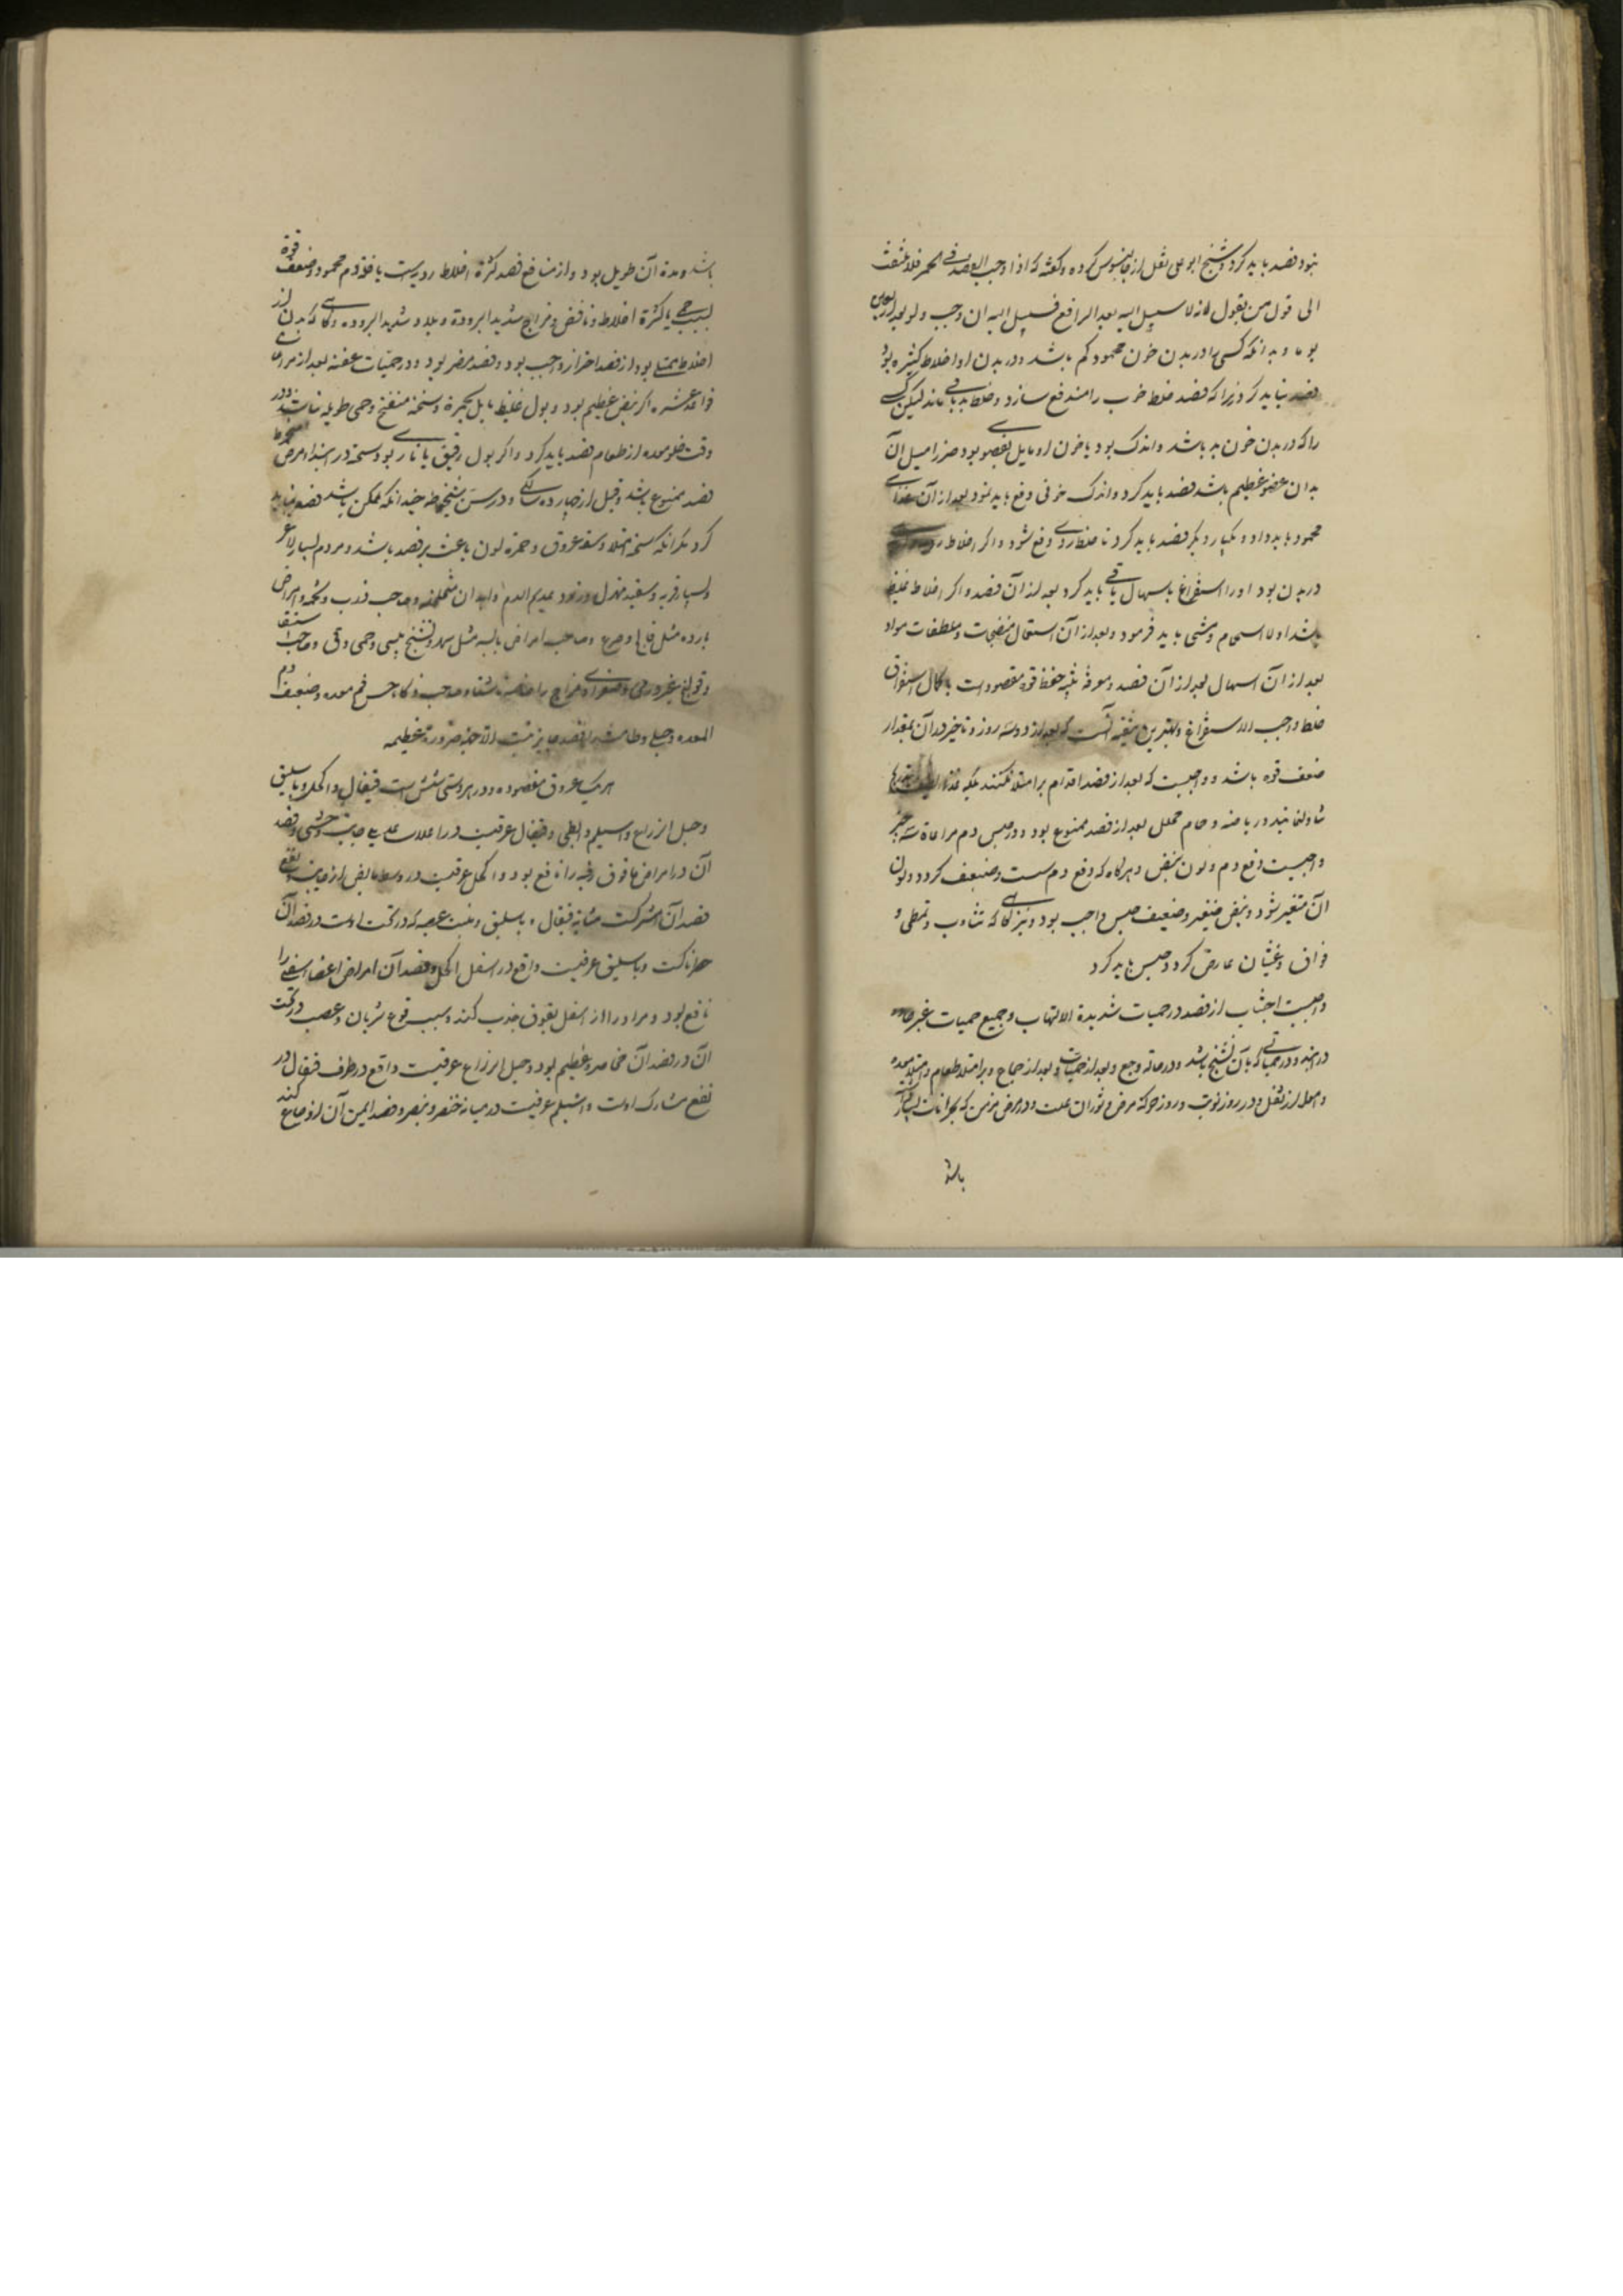 نبود فصد باید کرد و شیخ ابو علی نقل از جالینوس کرده و گفته که اذا وجب الفصد فی الحمی فلا تلتفت
الی قول من یقول انه لا سبیل الیه بعد الرابع فسبیل الیه ان وجب ولو بعد الاربعین
یوما و بدانکه کسی را در بدن خون محمود کم باشد و در بدن او اخلاط کثیره بود
فصد نباید کرد زیرا که فصد خلط خوب را مندفع سازد و خلط بد باقی ماند لیکن کسی
را که در بدن خون بد باشد و اندک بود یا خون او مایل بعضو بود ضرر میل آن
بدان عضو عظیم باشد فصد باید کرد و اندک خونی دفع باید نمود بعد از آن غذای
محمود باید داد و یکبار دیگر فصد باید کرد تا خلط ردی دفع شود و اگر اخلاط
در بدن بود اورا استفراغ باسهال یا قی باید کرد بعد از آن فصد و اگر اخلاط غلیظ
باشد اولا استحمام و مشی باید فرمود و بعد از آن استعمال منضجات و ملطفات مواد
بعد از آن اسهال بعد از آن فصد و معرفة تثنیه حفظ قوة مقصود است با کمال استفراق
خلط واجب الاستفراغ و بهترین تثنیه آنست که بعد از دو سه روز و تاخیر در آن بمقدار
ضعف قوه باشد و واجبست که بعد از فصد اقدام بر امتلا نکنند بلکه غذاء لطیف
تناول نمایند و ریاضه و حمام محلل بعد از فصد ممنوع بود و در حبس دم مراعاة سه چیز
واجبست دفع دم و لون نبض و هرگاه که دفع دم سست و ضعیف گردد و لون
آن متغیر شود و نبض صغیر و ضعیف حبس واجب بود و نیز گاهی که تثاوب و تمطی و
فواق و غثیان عارض گردد حبس باید کرد
واجبست اجتناب از فصد در حمیات شدیدة الالتهاب و جمیع حمیات غیر حاده
در ابتدا و در حمیاتی که با آن تشنج باشد و در حالة وجع و بعد از حمیات و بعد از جماع و بر امتلاء طعام و امتلاء معده
و امعا از ثقل و در روز نوبت و روز حرکة مرض و ثوران علت و در مرض مزمن که بحرانات بسیار
باشد
باشد و مدة آن طویل بود و از منافع فصد کثرة اخلاط ردیه است با قلة دم محمود و ضعف قوة
بسبب حمی یا کثرة اخلاط و نافض و مزاج شدید البرودة و بلاد شدید البروده و گاهی که بدن از
اخلاط ممتلی بود از فصد احتراز واجب بود و فصد مضر بود و در حمیات عفنه بعد از مراعات
قواعد عشره اگر نبض عظیم بود و بول غلیظ مایل بحمرة و سحنه منتفخ و حمی طویله نباشد در
وقت خلو معده از طعام فصد باید کرد و اگر بول رقیق یا ناری بود و سحنه در ابتداء مرض منخرط
فصد ممنوع باشد و قبل از چهارده سالگی و در سن شیخوخه چندانکه ممکن باشد فصد نباید
کرد مگر آنکه سحنه امتلا و سعة عروق و حمرة لون باعث بر فصد باشد و مردم بسیار لاغر
و بسیار فربه و سفید متهزل و زرد عدیم الدم و ابدان متخلخله و صاحب ذرب و تخمه و امراض
بارده مثل فالج و صرع و صاحب امراض یابسه مثل سهر و تشنج یبسی و حمی دق و صاحب استسقا
و قولنج غیر ورمی و صفراوی مزاج را خاصه و صاحب ذکاء حس فم معده و ضعیف فم
المعده و حبلی و طامث را فصد جایز نیست الا عند ضرورة عظیمه
اوردة عروق مفصوده و در هر دستی شش است قیفال و اکحل و باسلیق
و حبل الزراع و اسیلم و ابطی و قیفال عرقیست در اعلاء ساعد یلی جانب وحشی و فصد
آن در امراض مافوق رقبه را نافع بود و اکحل عرقیست در وسط مابض از جانب و نفع
فصد آن مشترکست میانه قیفال و باسلیق و بسبب عصبه که در تحت اوست در فصد آن
خطرناکست و باسلیق عرقیست واقع در اسفل اکحل و فصد آن امراض اعضاء سفلی را
نافع بود و مراد را از اسفل بفوق جذب کند و بسبب وقوع شریان و عصب در تحت
آن در فصد آن مخاطره عظیم بود و حبل الزراع عرقیست واقع در طرف قیفال و در
نفع مشارک اوست و اسیلم عرقیست در میانه خنصر و بنصر و فصد ایمن آن اوجاع کبد